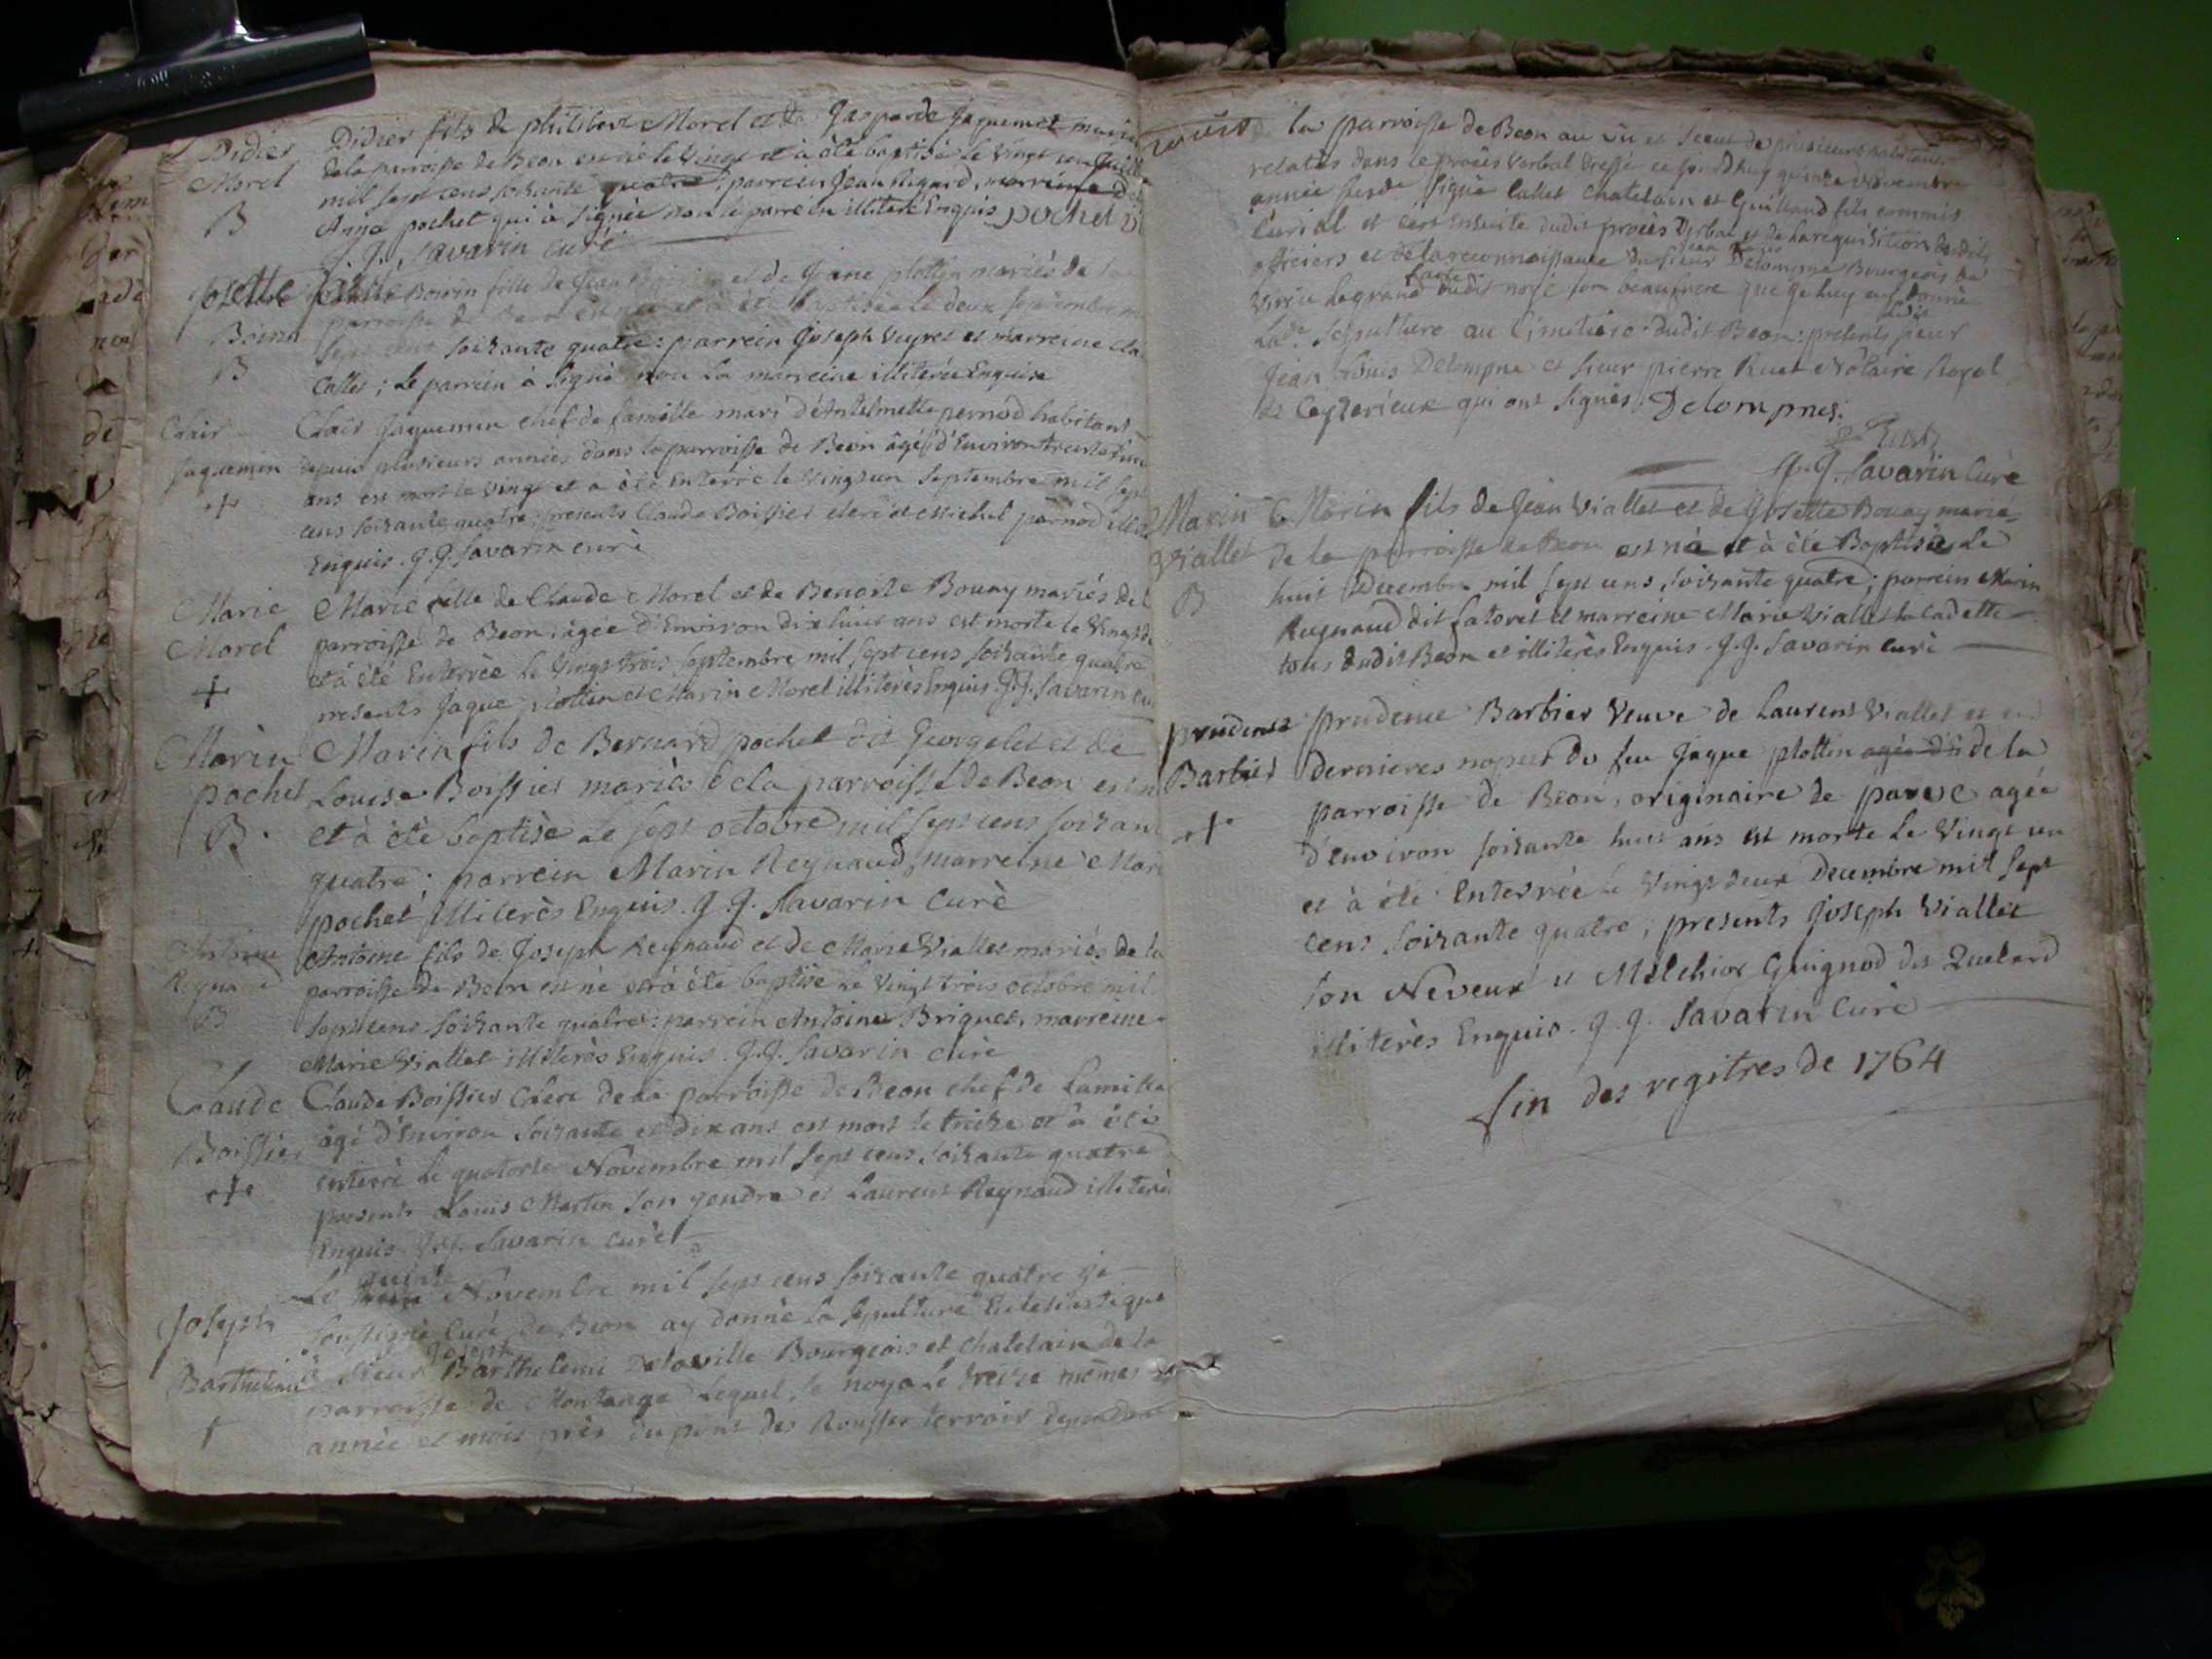 Didier
Morel
B
Didier fils de philibert Morel et de Gasparde Jaquemet mariés
de la parroisse de Beon est né le vingt et à été baptisé le vingt un
mil sept cens soixante quatre: parrein Jean Rigard, marreine
Anne pochet qui à signèe non le parrein illiterè Enquis pochet
J. J. Savarin Curè
Josette
Boirin
B
Josette Boirin fille de Jean Boirin et de Jeane plottin mariès de la
parroisse de Beon est née et à été baptisée le deux septembre
sept cent soixante quatre: parrein Joseph Veyret et marreine
Callet; Le parrein à signé non la marreine illiterée Enquise
Clair
Jaquemin
+
Clair Jaquemin chef de famille mari d'Antelmette pernod habitant
depuis plusieurs années dans la parroisse de Beon âgé d'Environ trente
ans est mort le vingt et a été Enterré le vingt un septembre mil sept
cens soixante quatre, presents Claude Boissier et Michel pernod
Enquis. J. J. Savarin curè
Marie
Morel
+
Marie fille de Claude Morel et de Benoite Bouay mariés de
parroisse de Beon, âgée d'Environ dix huit ans est morte le Vingt
et à été Enterrèe le vingt trois septembre mil sept cens soixante quatre
presents Jaque plottin et Marin Morel illiterès Enquis. J. J. Savarin
Marin
pochet
B.
Marin fils de Bernard pochet dit Georgelet et de
Louise Boissier mariès de la parroisse de Beon est
et à été baptisè le sept octobre mil sept cens soixante
quatre; parrein Marin Reynaud, marreine
pochet illiterès Enquis. J. J. Savarin Curè
Antoine
Reynaud
B
Antoine fils de Joseph Reynaud et de Marie Viallet mariés de la
parroisse de Beon est né et à été baptisé le vingt trois octobre mil
sept cens soixante quatre: parrein Antoine Briquet, marreine
Marie Viallet illiterès Enquis. J. J. Savarin Curè
Claude
Boissier
+
Claude Boissier Clerc de la parroisse de Beon chef de famille
âgé d'Environ soixante et dix ans est mort le treize et à été
enterré le quatorze Novembre mil sept cens soixante quatre
presents Louis Martin son gendre et Laurent Reynaud illiterès
Enquis J. J. Savarin curè
Joseph
Barthelemi
+
Le quinze Novembre mil sept cens soixante quatre je
soussigné Curé de Beon ay donné la sepulture Ecclesiastique
à sieur Joseph Barthelemi Delaville Bourgeois et chatelain de la
parroisse de Montange lequel se noya le treize mêmes
année et mois près du pont des Rousses terroir dependant
la parroisse de Beon au vû et sceut de plusieurs habitans
relatés dans le procès verbal dressé ce jourd'huy quinze Novembre
année susde signé Callet chatelain et Guilland fils commis
Curial et c'est Ensuite dudit procès verbal et de la requisition desdits
officiers et de la reconnoissance du sieur Jean Louis Delompne Bourgeois de
Virieu le grand faite dudit noyé son beaufrere que je luy ay donné
Lade sepulture au Cimetière dudit Beon: presents ledit sieur
Jean Louis Delompne et sieur pierre Ruet Notaire Royal
de Ceyzerieux qui ont signés. Delompnes.
Ruet
J. J. Savarin Curè
Marin
Viallet
B
Marin fils de Jean Viallet et de Josette Bouay mariés
de la parroisse de Beon est né et à été Baptisé Le
huit Decembre mil sept cens soixante quatre; parrein Marin
Reynaud dit fatoret et marreine Marie Viallet la Cadette
tous dudit Beon et illiterès Enquis. J. J. Savarin curè
prudence
Barbier
+
prudence Barbier Veuve de Laurens Viallet et en
dernieres nopces de feu Jaque plottin agée d'e de la
parroisse de Beon, originaire de parve agée
d'environ soixante huit ans est morte le vingt un
et à été Enterrée le vingt deux Decembre mil sept
cens soixante quatre, presents Joseph Viallet
son Neveux et Melchior Guignod dit Quelard
illiterès Enquis. J. J. Savarin Curè
fin des regitres de 1764